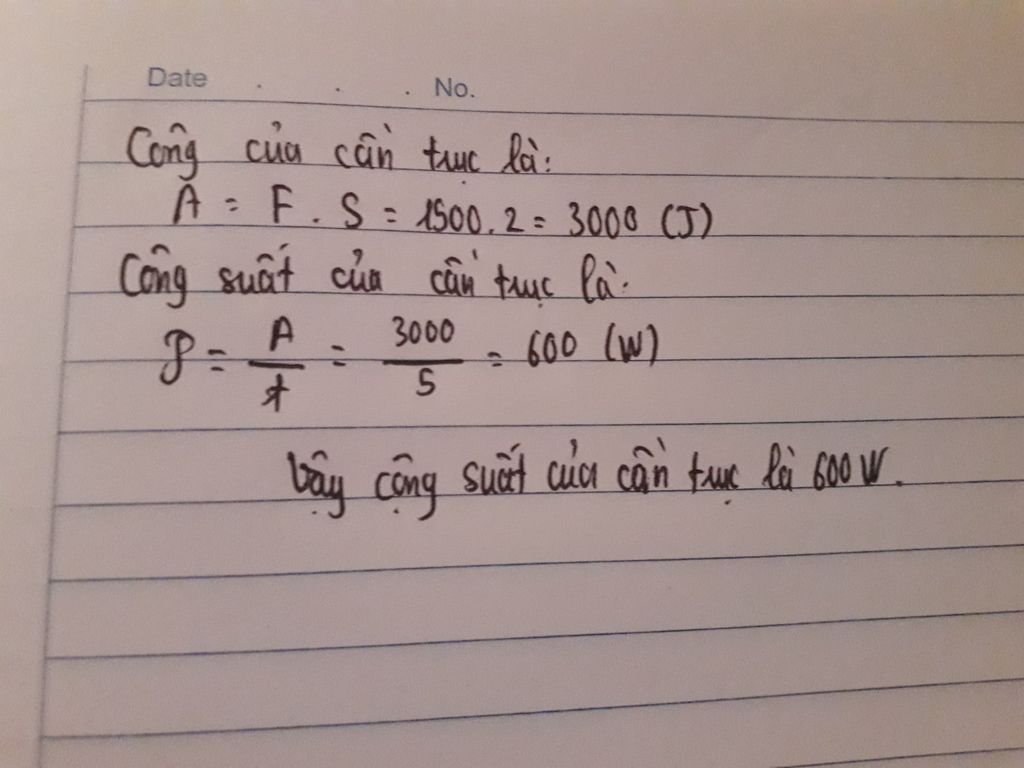 Date . . . No.
Công của cần trục là:
A = F . S = 1500. 2 = 3000 (J)
Công suất của cần trục là:
P = A/t = 3000/5 = 600 (W)
Vậy công suất của cần trục là 600 W.